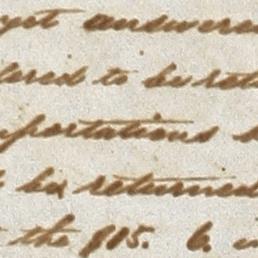 yet answered
to be
portations
be returned
the 915. 6.